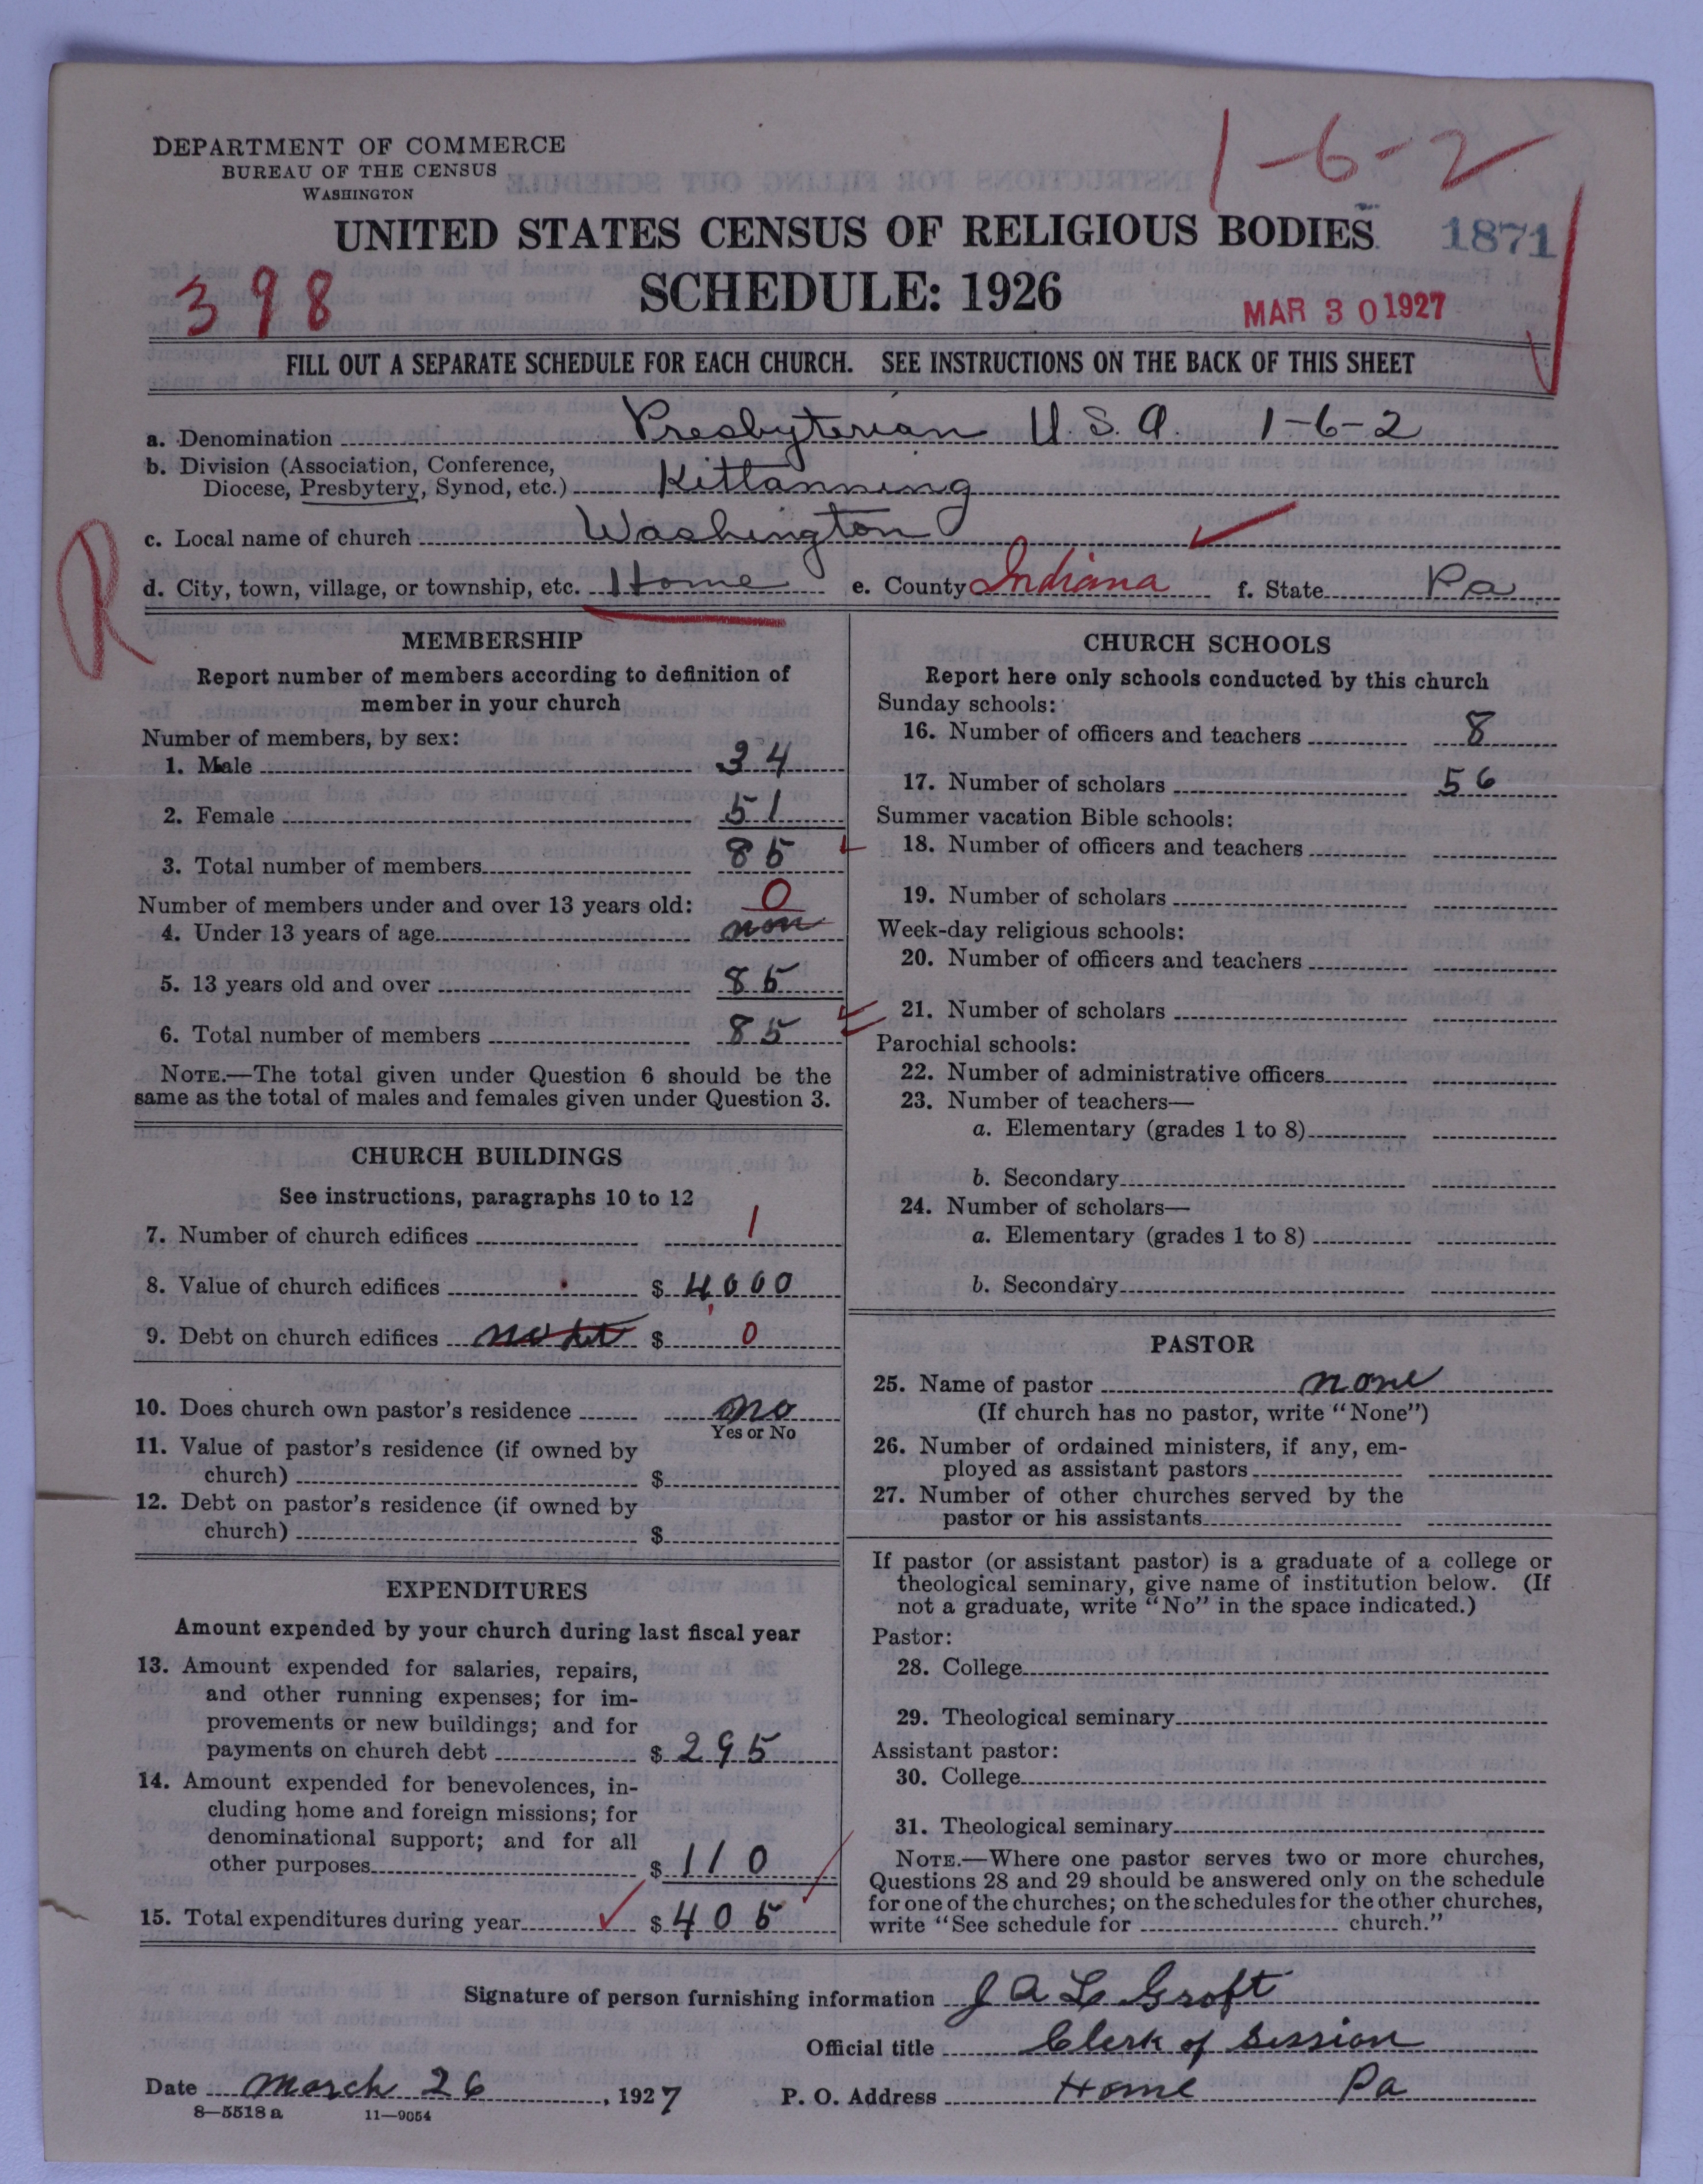 1-6-2
DEPARTMENT OF COMMERCE
BUREAU OF THE CENSUS
WASHINGTON
UNITED STATES CENSUS OF RELIGIOUS BODIES
1871
398
SCHEDULE: 1926
MAR 30 1927
FILL OUT A SEPARATE SCHEDULE FOR EACH CHURCH. SEE INSTRUCTIONS ON THE BACK OF THIS SHEET
a. Denomination Presbyterian U.S.A. 1-6-2
b. Division (Association, Conference,
Diocese, Presbytery, Synod, etc.) Kittanning
c. Local name of church Washington
R
d. City, town, village, or township, etc. Home e. County Indiana f. State Pa
MEMBERSHIP
Report number of members according to definition of
member in your church
Number of members, by sex:
1. Male 34
2. Female 51
3. Total number of members 85
Number of members under and over 13 years old: 0
4. Under 13 years of age non
5. 13 years old and over 85
6. Total number of members 85
NOTE.—The total given under Question 6 should be the
same as the total of males and females given under Question 3.
CHURCH BUILDINGS
See instructions, paragraphs 10 to 12
7. Number of church edifices 1
8. Value of church edifices $ 4,000
9. Debt on church edifices $ 0
10. Does church own pastor's residence no
Yes or No
11. Value of pastor's residence (if owned by
church) $
12. Debt on pastor's residence (if owned by
church) $
EXPENDITURES
Amount expended by your church during last fiscal year
13. Amount expended for salaries, repairs,
and other running expenses; for im-
provements or new buildings; and for
payments on church debt $ 295
14. Amount expended for benevolences, in-
cluding home and foreign missions; for
denominational support; and for all
other purposes $ 110
15. Total expenditures during year $ 405
CHURCH SCHOOLS
Report here only schools conducted by this church
Sunday schools:
16. Number of officers and teachers 8
17. Number of scholars 56
Summer vacation Bible schools:
18. Number of officers and teachers
19. Number of scholars
Week-day religious schools:
20. Number of officers and teachers
21. Number of scholars
Parochial schools:
22. Number of administrative officers
23. Number of teachers—
a. Elementary (grades 1 to 8)
b. Secondary
24. Number of scholars—
a. Elementary (grades 1 to 8)
b. Secondary
PASTOR
25. Name of pastor none
(If church has no pastor, write "None")
26. Number of ordained ministers, if any, em-
ployed as assistant pastors
27. Number of other churches served by the
pastor or his assistants
If pastor (or assistant pastor) is a graduate of a college or
theological seminary, give name of institution below. (If
not a graduate, write "No" in the space indicated.)
Pastor:
28. College
29. Theological seminary
Assistant pastor:
30. College
31. Theological seminary
NOTE.—Where one pastor serves two or more churches,
Questions 28 and 29 should be answered only on the schedule
for one of the churches; on the schedules for the other churches,
write "See schedule for church."
Signature of person furnishing information J A L Groft
Official title Clerk of Session
Date March 26, 1927 P. O. Address Home Pa
8—5518 a 11—9054